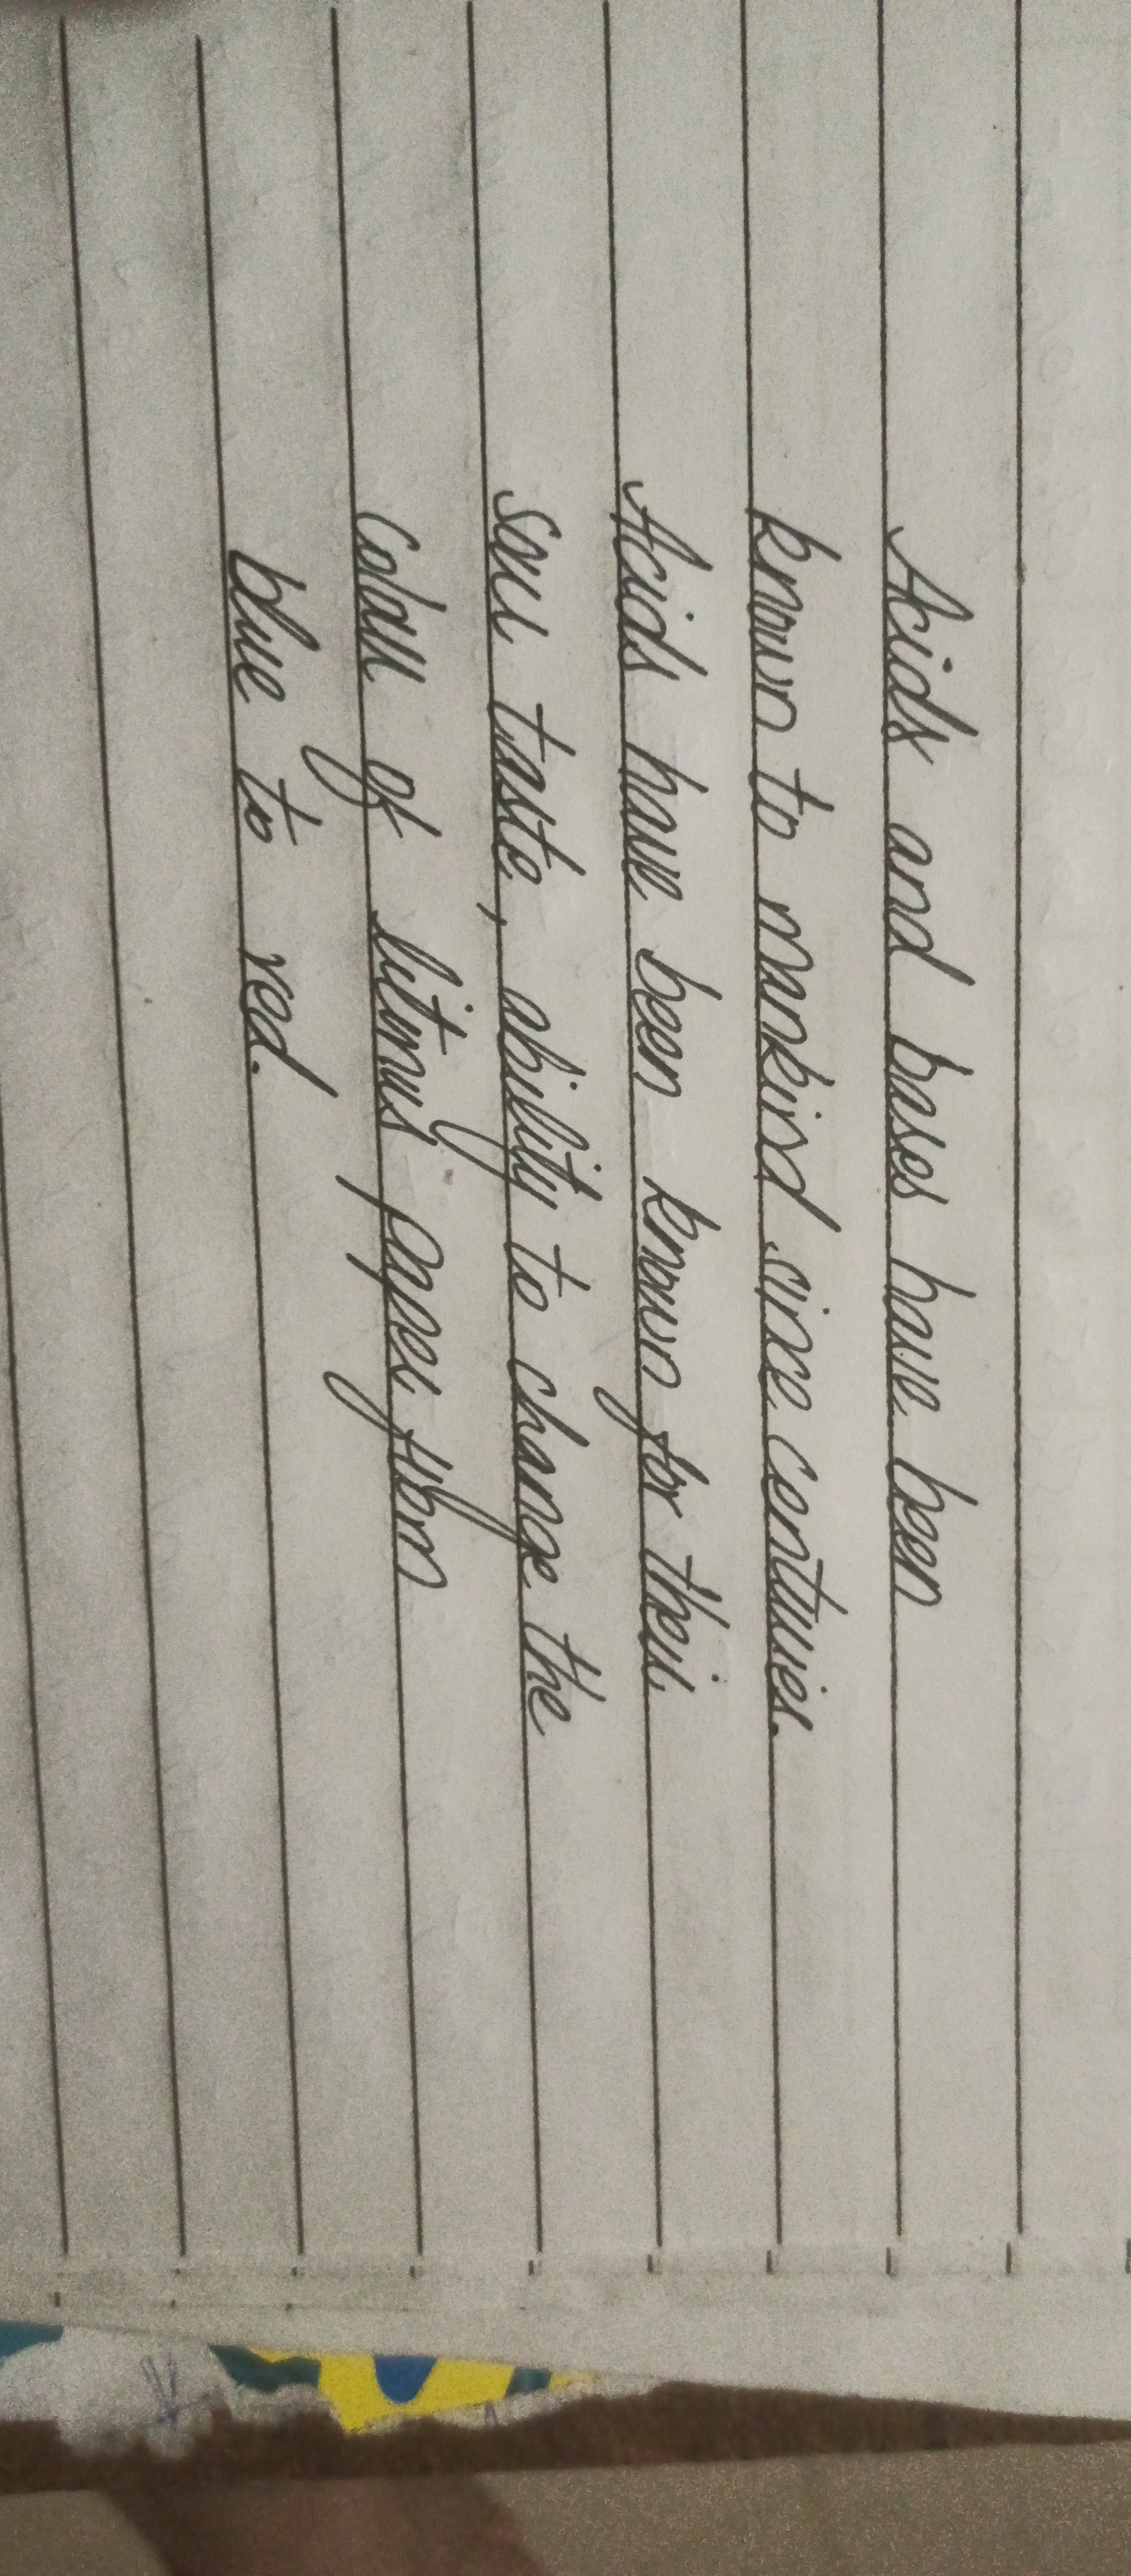 Acids and bases have been
known to mankind since centuries.
Acids have been known for their
sour taste, ability to change the
colour of litmus paper from
blue to red.